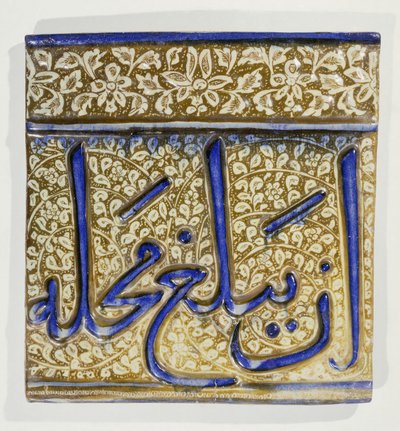 ان يبلغ محله